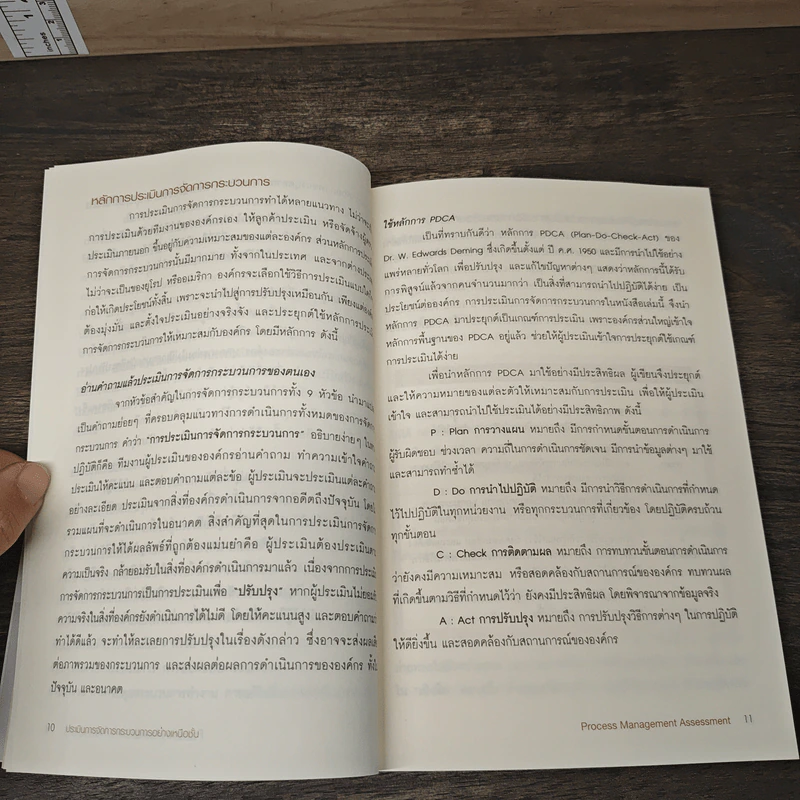 inches
1
2
3
หลักการประเมินการจัดการกระบวนการ
การประเมินการจัดการกระบวนการทำได้หลายแนวทาง ไม่ว่าจะ
การประเมินด้วยทีมงานขององค์กรเอง ให้ลูกค้าประเมิน หรือจัดจ้าง
ประเมินภายนอก ขึ้นอยู่กับความเหมาะสมของแต่ละองค์กร ส่วนหลักการ
การจัดการกระบวนการนั้นมีมากมาย ทั้งจากในประเทศ และจากต่าง
ไม่ว่าจะเป็นของยุโรป หรืออเมริกา องค์กรจะเลือกใช้วิธีการประเมินแบบใด
ก่อให้เกิดประโยชน์ทั้งสิ้น เพราะจะนำไปสู่การปรับปรุงเหมือนกัน เพียงแต่
ต้องมุ่งมั่น และตั้งใจประเมินอย่างจริงจัง และประยุกต์ใช้หลักการ
การจัดการกระบวนการให้เหมาะสมกับองค์กร โดยมีหลักการ ดังนี้
อ่านคำถามแล้วประเมินการจัดการกระบวนการของตนเอง
จากหัวข้อสำคัญในการจัดการกระบวนการทั้ง 9 หัวข้อ นำมา
เป็นคำถามย่อยๆ ที่ครอบคลุมแนวทางการดำเนินการทั้งหมดของการจัดการ
กระบวนการ คำว่า “การประเมินการจัดการกระบวนการ” อธิบายง่ายๆ ใน
ปฏิบัติก็คือ ทีมงานผู้ประเมินขององค์กรอ่านคำถาม ทำความเข้าใจคำถาม
ประเมินให้คะแนน และตอบคำถามแต่ละข้อ ผู้ประเมินจะประเมินแต่ละคำถาม
อย่างละเอียด ประเมินจากสิ่งที่องค์กรดำเนินการจากอดีตถึงปัจจุบัน โดย
รวมแผนที่จะดำเนินการในอนาคต สิ่งสำคัญที่สุดในการประเมินการจัดการ
กระบวนการให้ได้ผลลัพธ์ที่ถูกต้องแม่นยำคือ ผู้ประเมินต้องประเมินตาม
ความเป็นจริง กล้ายอมรับในสิ่งที่องค์กรดำเนินการมาแล้ว เนื่องจากการประเมิน
การจัดการกระบวนการเป็นการประเมินเพื่อ “ปรับปรุง” หากผู้ประเมินไม่ยอมรับ
ความจริงในสิ่งที่องค์กรยังดำเนินการได้ไม่ดี โดยให้คะแนนสูง และตอบคำถามว่า
ทำได้ดีแล้ว จะทำให้ละเลยการปรับปรุงในเรื่องดังกล่าว ซึ่งอาจจะส่งผล
ต่อภาพรวมของกระบวนการ และส่งผลต่อผลการดำเนินการขององค์กร ทั้งใน
ปัจจุบัน และอนาคต
10 ประเมินการจัดการกระบวนการอย่างเหนือชั้น
ใช้หลักการ PDCA
เป็นที่ทราบกันดีว่า หลักการ PDCA (Plan-Do-Check-Act) ของ
Dr. W. Edwards Deming ซึ่งเกิดขึ้นตั้งแต่ ปี ค.ศ. 1950 และมีการนำไปใช้อย่าง
แพร่หลายทั่วโลก เพื่อปรับปรุง และแก้ไขปัญหาต่างๆ แสดงว่าหลักการนี้ได้รับ
การพิสูจน์แล้วจากคนจำนวนมากว่า เป็นสิ่งที่สามารถนำไปปฏิบัติได้ง่าย เป็น
ประโยชน์ต่อองค์กร การประเมินการจัดการกระบวนการในหนังสือเล่มนี้ จึงนำ
หลักการ PDCA มาประยุกต์เป็นเกณฑ์การประเมิน เพราะองค์กรส่วนใหญ่เข้าใจ
หลักการพื้นฐานของ PDCA อยู่แล้ว ช่วยให้ผู้ประเมินเข้าใจการประยุกต์ใช้เกณฑ์
การประเมินได้ง่าย
เพื่อนำหลักการ PDCA มาใช้อย่างมีประสิทธิผล ผู้เขียนจึงประยุกต์
และให้ความหมายของแต่ละตัวให้เหมาะสมกับการประเมิน เพื่อให้ผู้ประเมิน
เข้าใจ และสามารถนำไปใช้ประเมินได้อย่างมีประสิทธิภาพ ดังนี้
P : Plan การวางแผน หมายถึง มีการกำหนดขั้นตอนการดำเนินการ
ผู้รับผิดชอบ ช่วงเวลา ความถี่ในการดำเนินการชัดเจน มีการนำข้อมูลต่างๆ มาใช้
และสามารถทำซ้ำได้
D : Do การนำไปปฏิบัติ หมายถึง มีการนำวิธีการดำเนินการที่กำหนด
ไว้ไปปฏิบัติในทุกหน่วยงาน หรือทุกกระบวนการที่เกี่ยวข้อง โดยปฏิบัติครบถ้วน
ทุกขั้นตอน
C : Check การติดตามผล หมายถึง การทบทวนขั้นตอนการดำเนินการ
ว่ายังคงมีความเหมาะสม หรือสอดคล้องกับสถานการณ์ขององค์กร ทบทวนผล
ที่เกิดขึ้นตามวิธีที่กำหนดไว้ว่า ยังคงมีประสิทธิผล โดยพิจารณาจากข้อมูลจริง
A : Act การปรับปรุง หมายถึง การปรับปรุงวิธีการต่างๆ ในการปฏิบัติ
ให้ดียิ่งขึ้น และสอดคล้องกับสถานการณ์ขององค์กร
Process Management Assessment 11